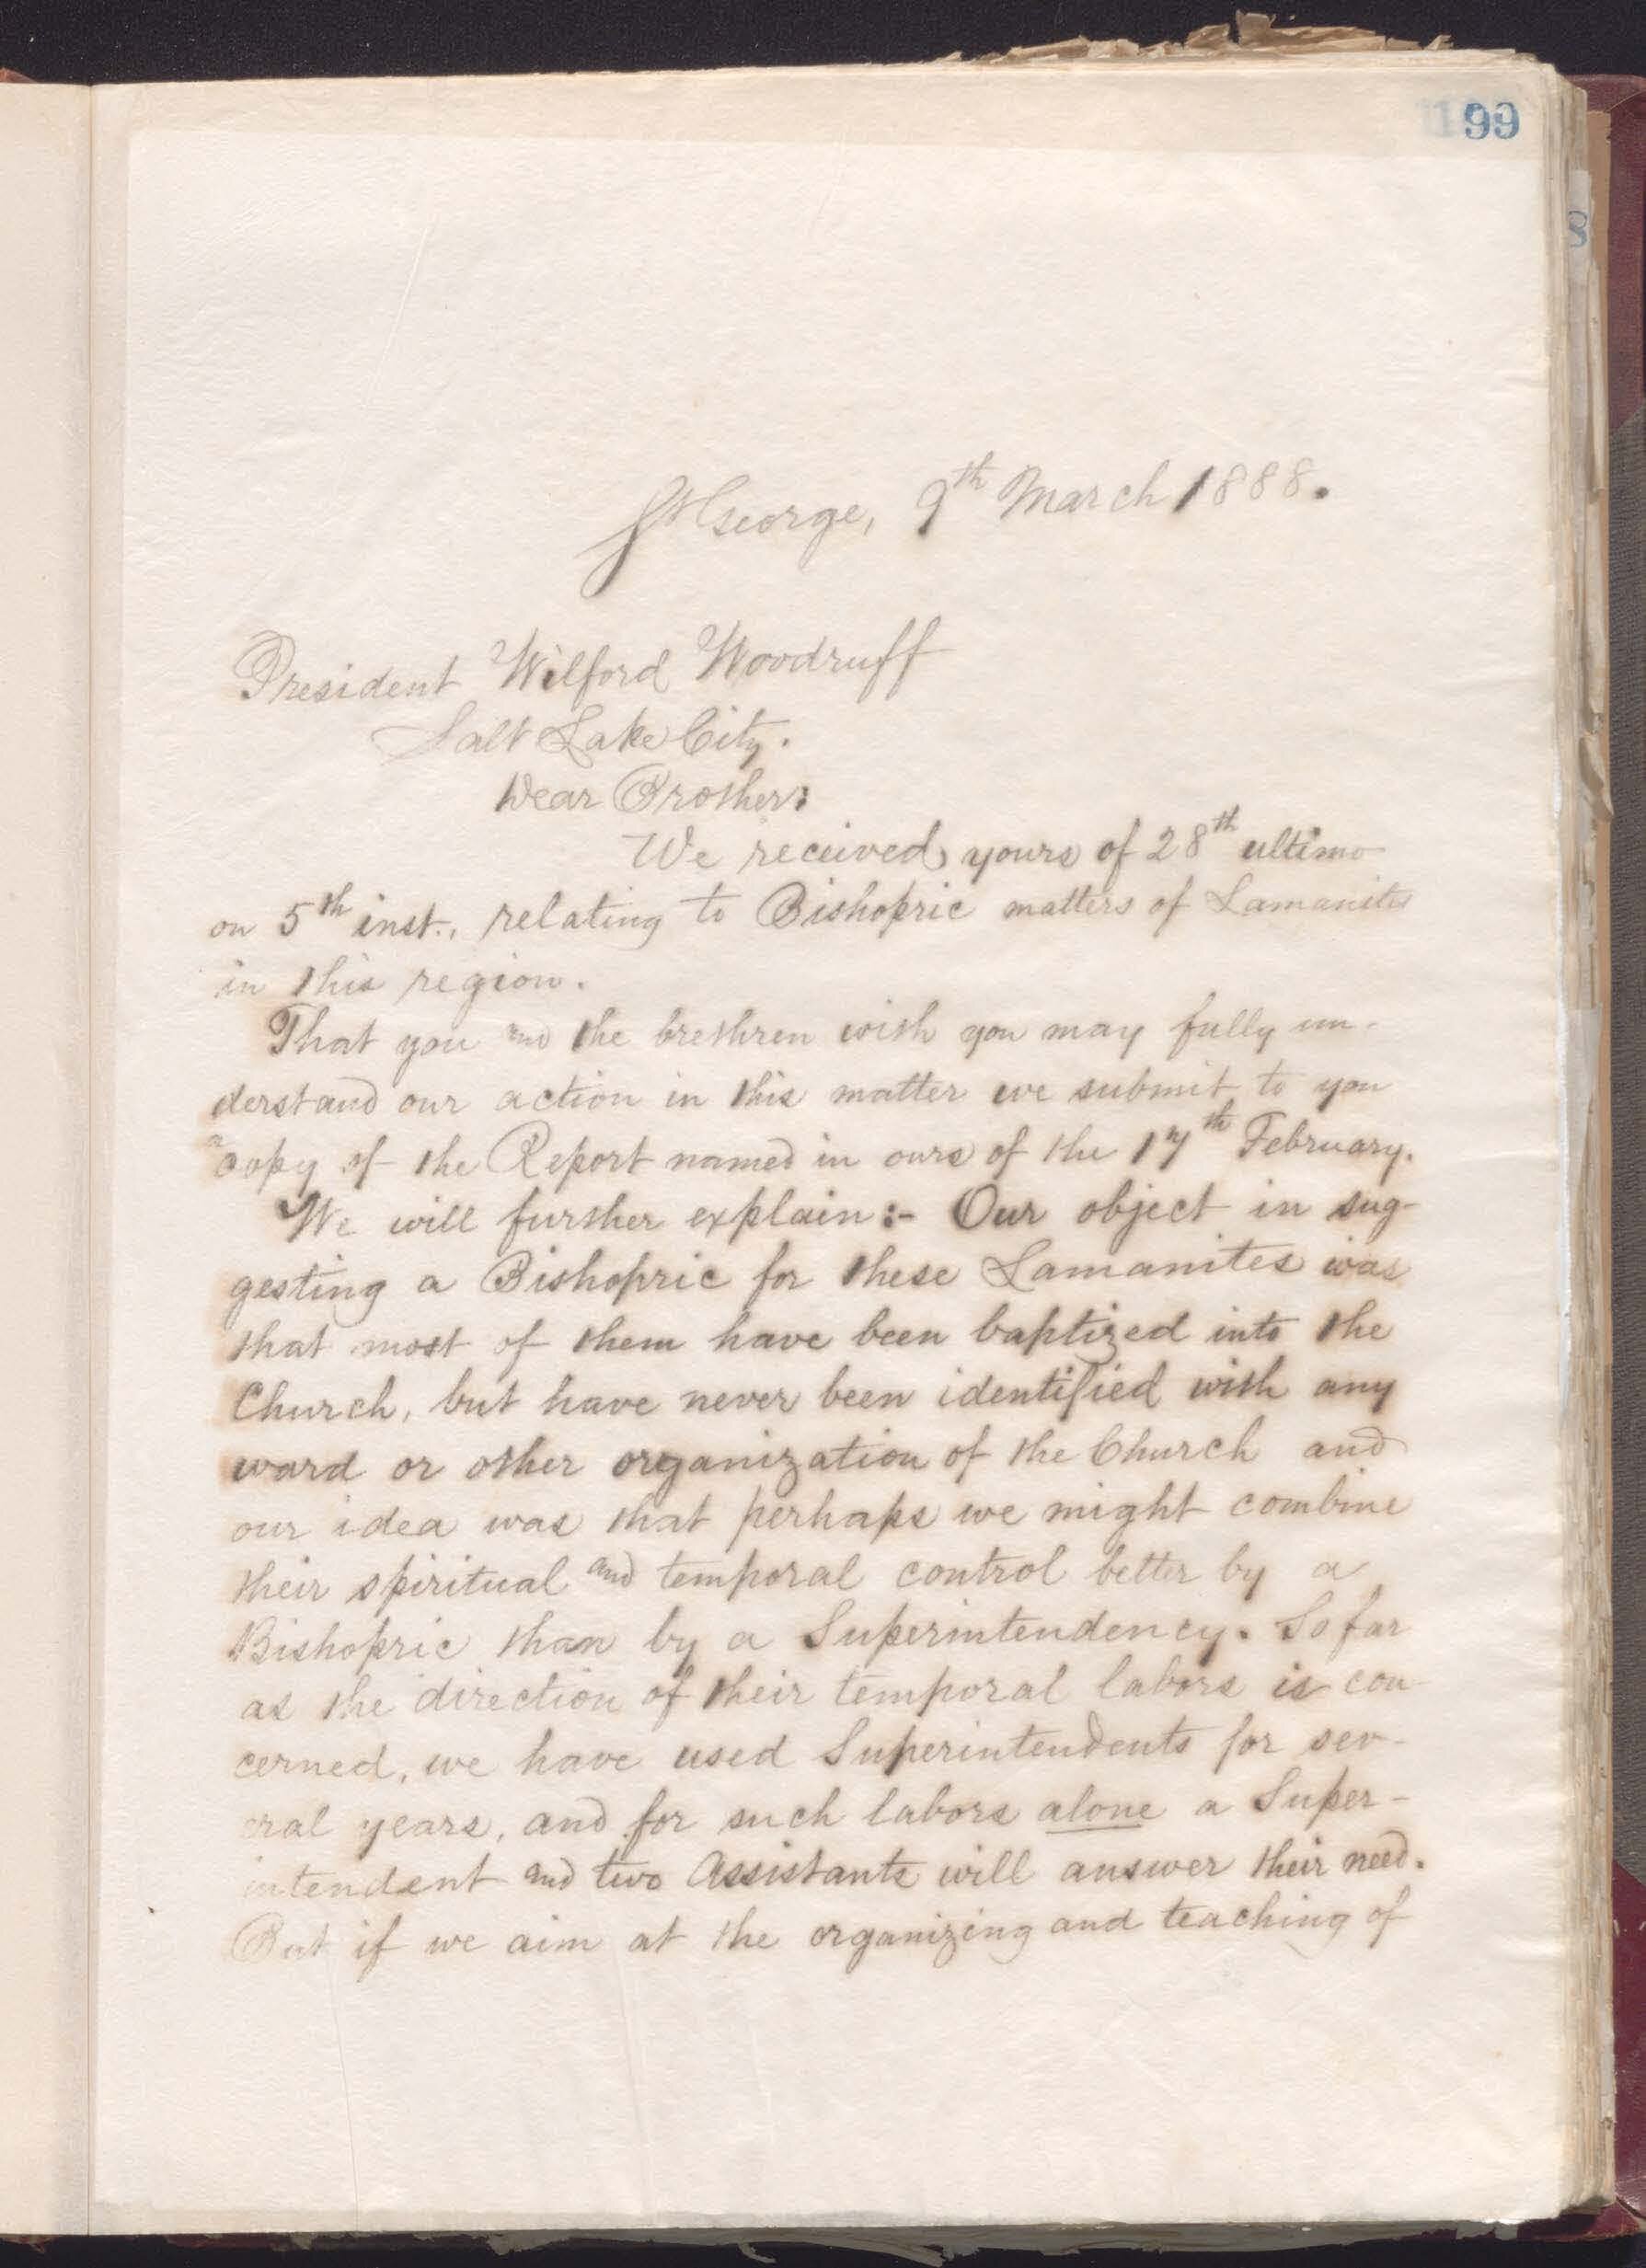 199
8
St George, 9th March 1888.
President Wilford Woodruff
Salt Lake City.
Dear Brother:
We received yours of 28th ultimo
on 5th inst., relating to Bishopric matters of Lamanites
in this region.
That you and the brethren wish you may fully un-
derstand our action in this matter we submit to you
a copy of the Report named in ours of the 17th February.
We will further explain:- Our object in sug-
gesting a Bishopric for these Lamanites was
that most of them have been baptized into the
Church, but have never been identified with any
ward or other organization of the Church and
our idea was that perhaps we might combine
their spiritual and temporal control better by a
Bishopric than by a Superintendency. So far
as the direction of their temporal labors is con-
cerned, we have used Superintendents for sev-
eral years, and for such labors alone a Super-
intendent and two Assistants will answer their need.
But if we aim at the organizing and teaching of